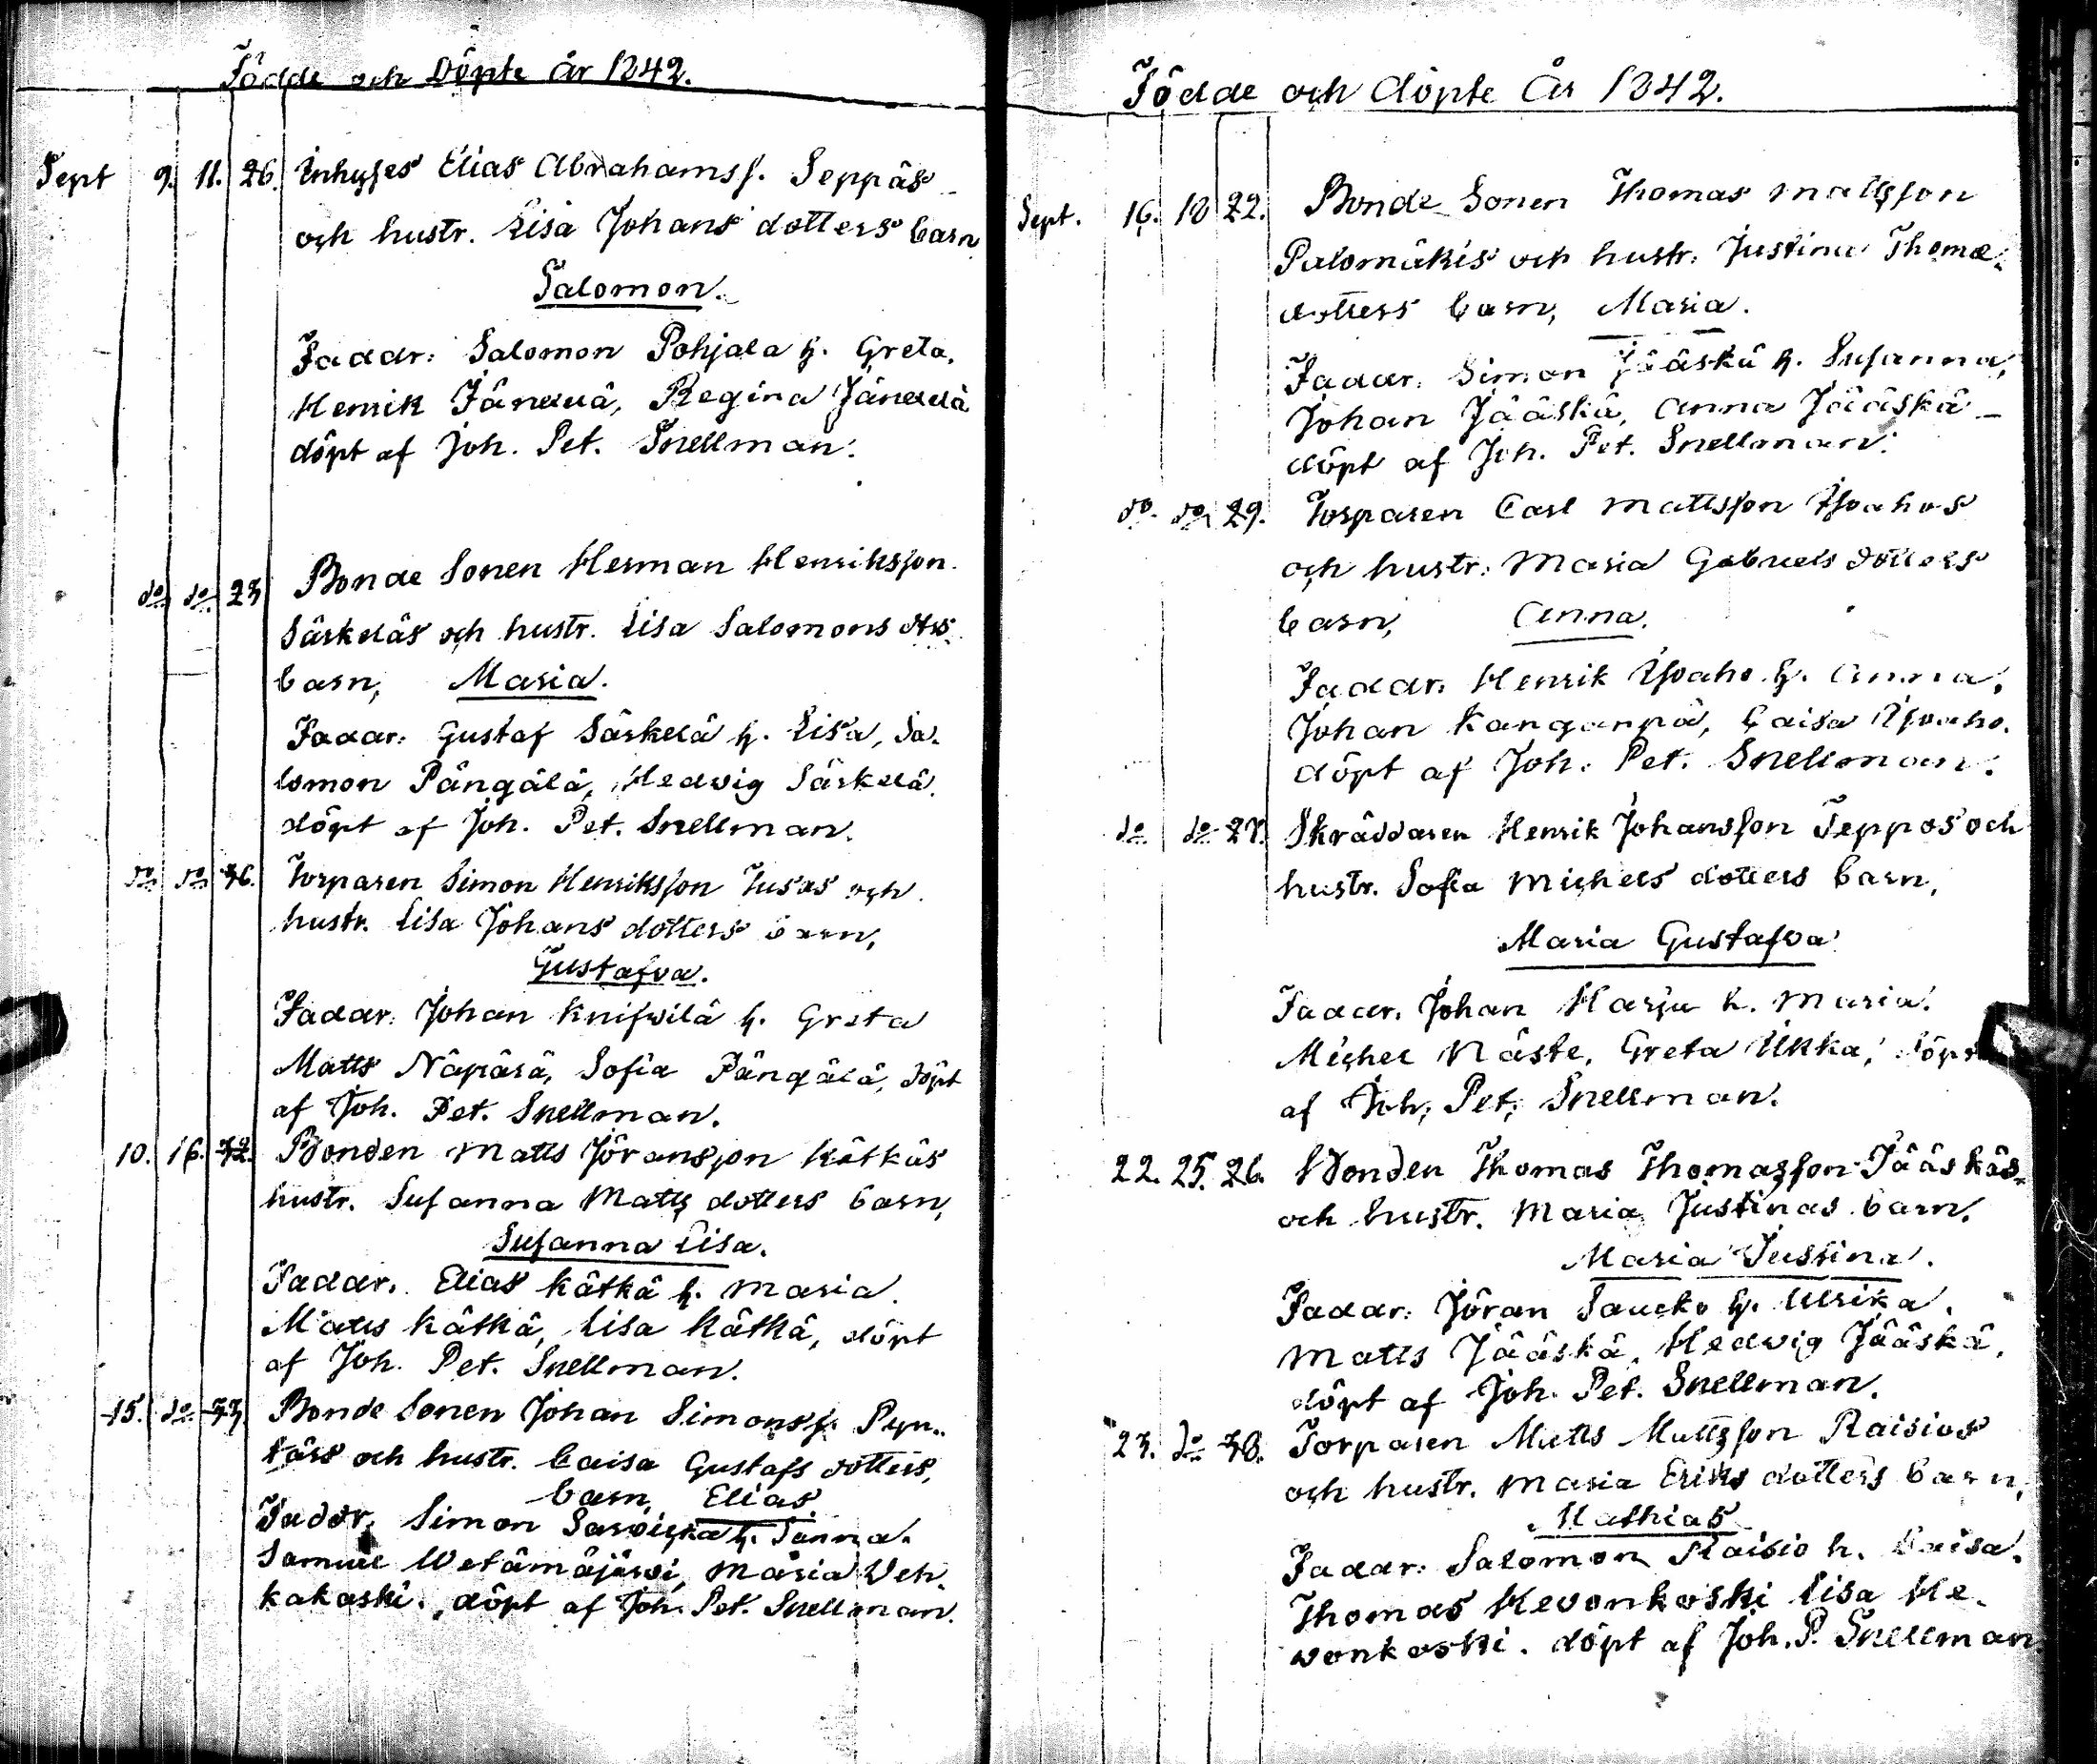 Födde och Döpte År 1842.
Sept 9. 11. 26. Inhyses Elias Abrahamss. Seppäs
och hustr. Lisa Johans dotters barn
Salomon.
Faddr: Salomon Pohjala h. Greta,
Henrik Jändä, Regina
döpt af Joh. Pet. Snellman.
do do 23 Bonde Sonen Herman Henriksson
Särkeläs och hustr. Lisa Salomons dtrs
barn, Maria.
Faddr: Gustaf Särkelä h. Lisa, Sa-
lomon Pängälä, Hedvig Särkelä.
döpt af Joh. Pet. Snellman.
do do 36. Torparen Simon Henriksson Jusas och
hustr. Lisa Johans dotters barn,
Gustafva.
Faddr: Johan Knifsilä h. Greta
Matts Näpärä, Sofia Pängälä, döpt
af Joh. Pet. Snellman.
10. 16. 32. Bonden Matts Jöransson Kätkäs
hustr. Susanna Matts dotters barn,
Susanna Lisa.
Faddr. Elias Kätkä h. Maria.
Matts Kätkä, Lisa Kätkä, döpt
af Joh. Pet. Snellman.
15. do 33 Bonde Sonen Johan Simonss. Pyn-
tärs och hustr. Caisa Gustafs dotters,
barn, Elias
Faddr. Simon h. Sanna.
Samuel Wetämäjärvi, Maria Veh-
kakoski. döpt af Joh. Pet. Snellman.
Födde och döpte År 1842.
Sept. 16. 18 22. Bonde Sonen Thomas Mattsson
Palomäkis och hustr. Justina Thomæ-
dotters barn, Maria.
Faddr. Simon Jääskä h. Susanna,
Johan Jääskä, Anna Jääskä
döpt af Joh. Pet. Snellman.
do do 29. Torparen Carl Mattsson Isoahos
och hustr. Maria Gabriels dotters
barn, Anna.
Faddr. Henrik Isoaho h. Anna,
Johan Kanganpä, Caisa Isoaho.
döpt af Joh. Pet. Snellman.
do do 27. Skräddaren Henrik Johansson Seppos och
hustr. Sofia Michels dotters barn,
Maria Gustafva
Faddr. Johan Harju h. Maria.
Michel Näste, Greta Ukka, döpt
af Joh. Pet. Snellman.
22. 25. 26. Bonden Thomas Thomasson Jääskäs
och hustr. Maria Justinas barn.
Maria Justina.
Faddr: Jöran Saucko h. Ulrika.
Matts Jääskä, Hedvig Jääskä,
döpt af Joh. Pet. Snellman.
23. do 38. Torparen Matts Mattsson Raisios
och hustr. Maria Eriks dotters barn,
Mathias
Faddr: Salomon Raisio h. Caisa.
Thomas Hevonkoski Lisa He-
vonkoski. döpt af Joh. P. Snellman